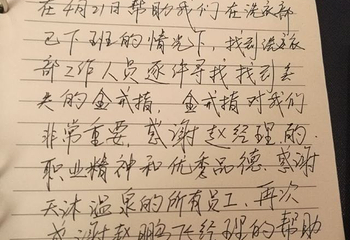 在4月21日帮助我们在洗衣部
已下班的情况下，找到洗衣
部工作人员逐件寻找找到丢
失的金戒指，金戒指对我们
非常重要，感谢赵经理的
职业精神和优秀品德．感谢
天沐温泉的所有员工，再次
感谢赵鹏飞经理的帮助